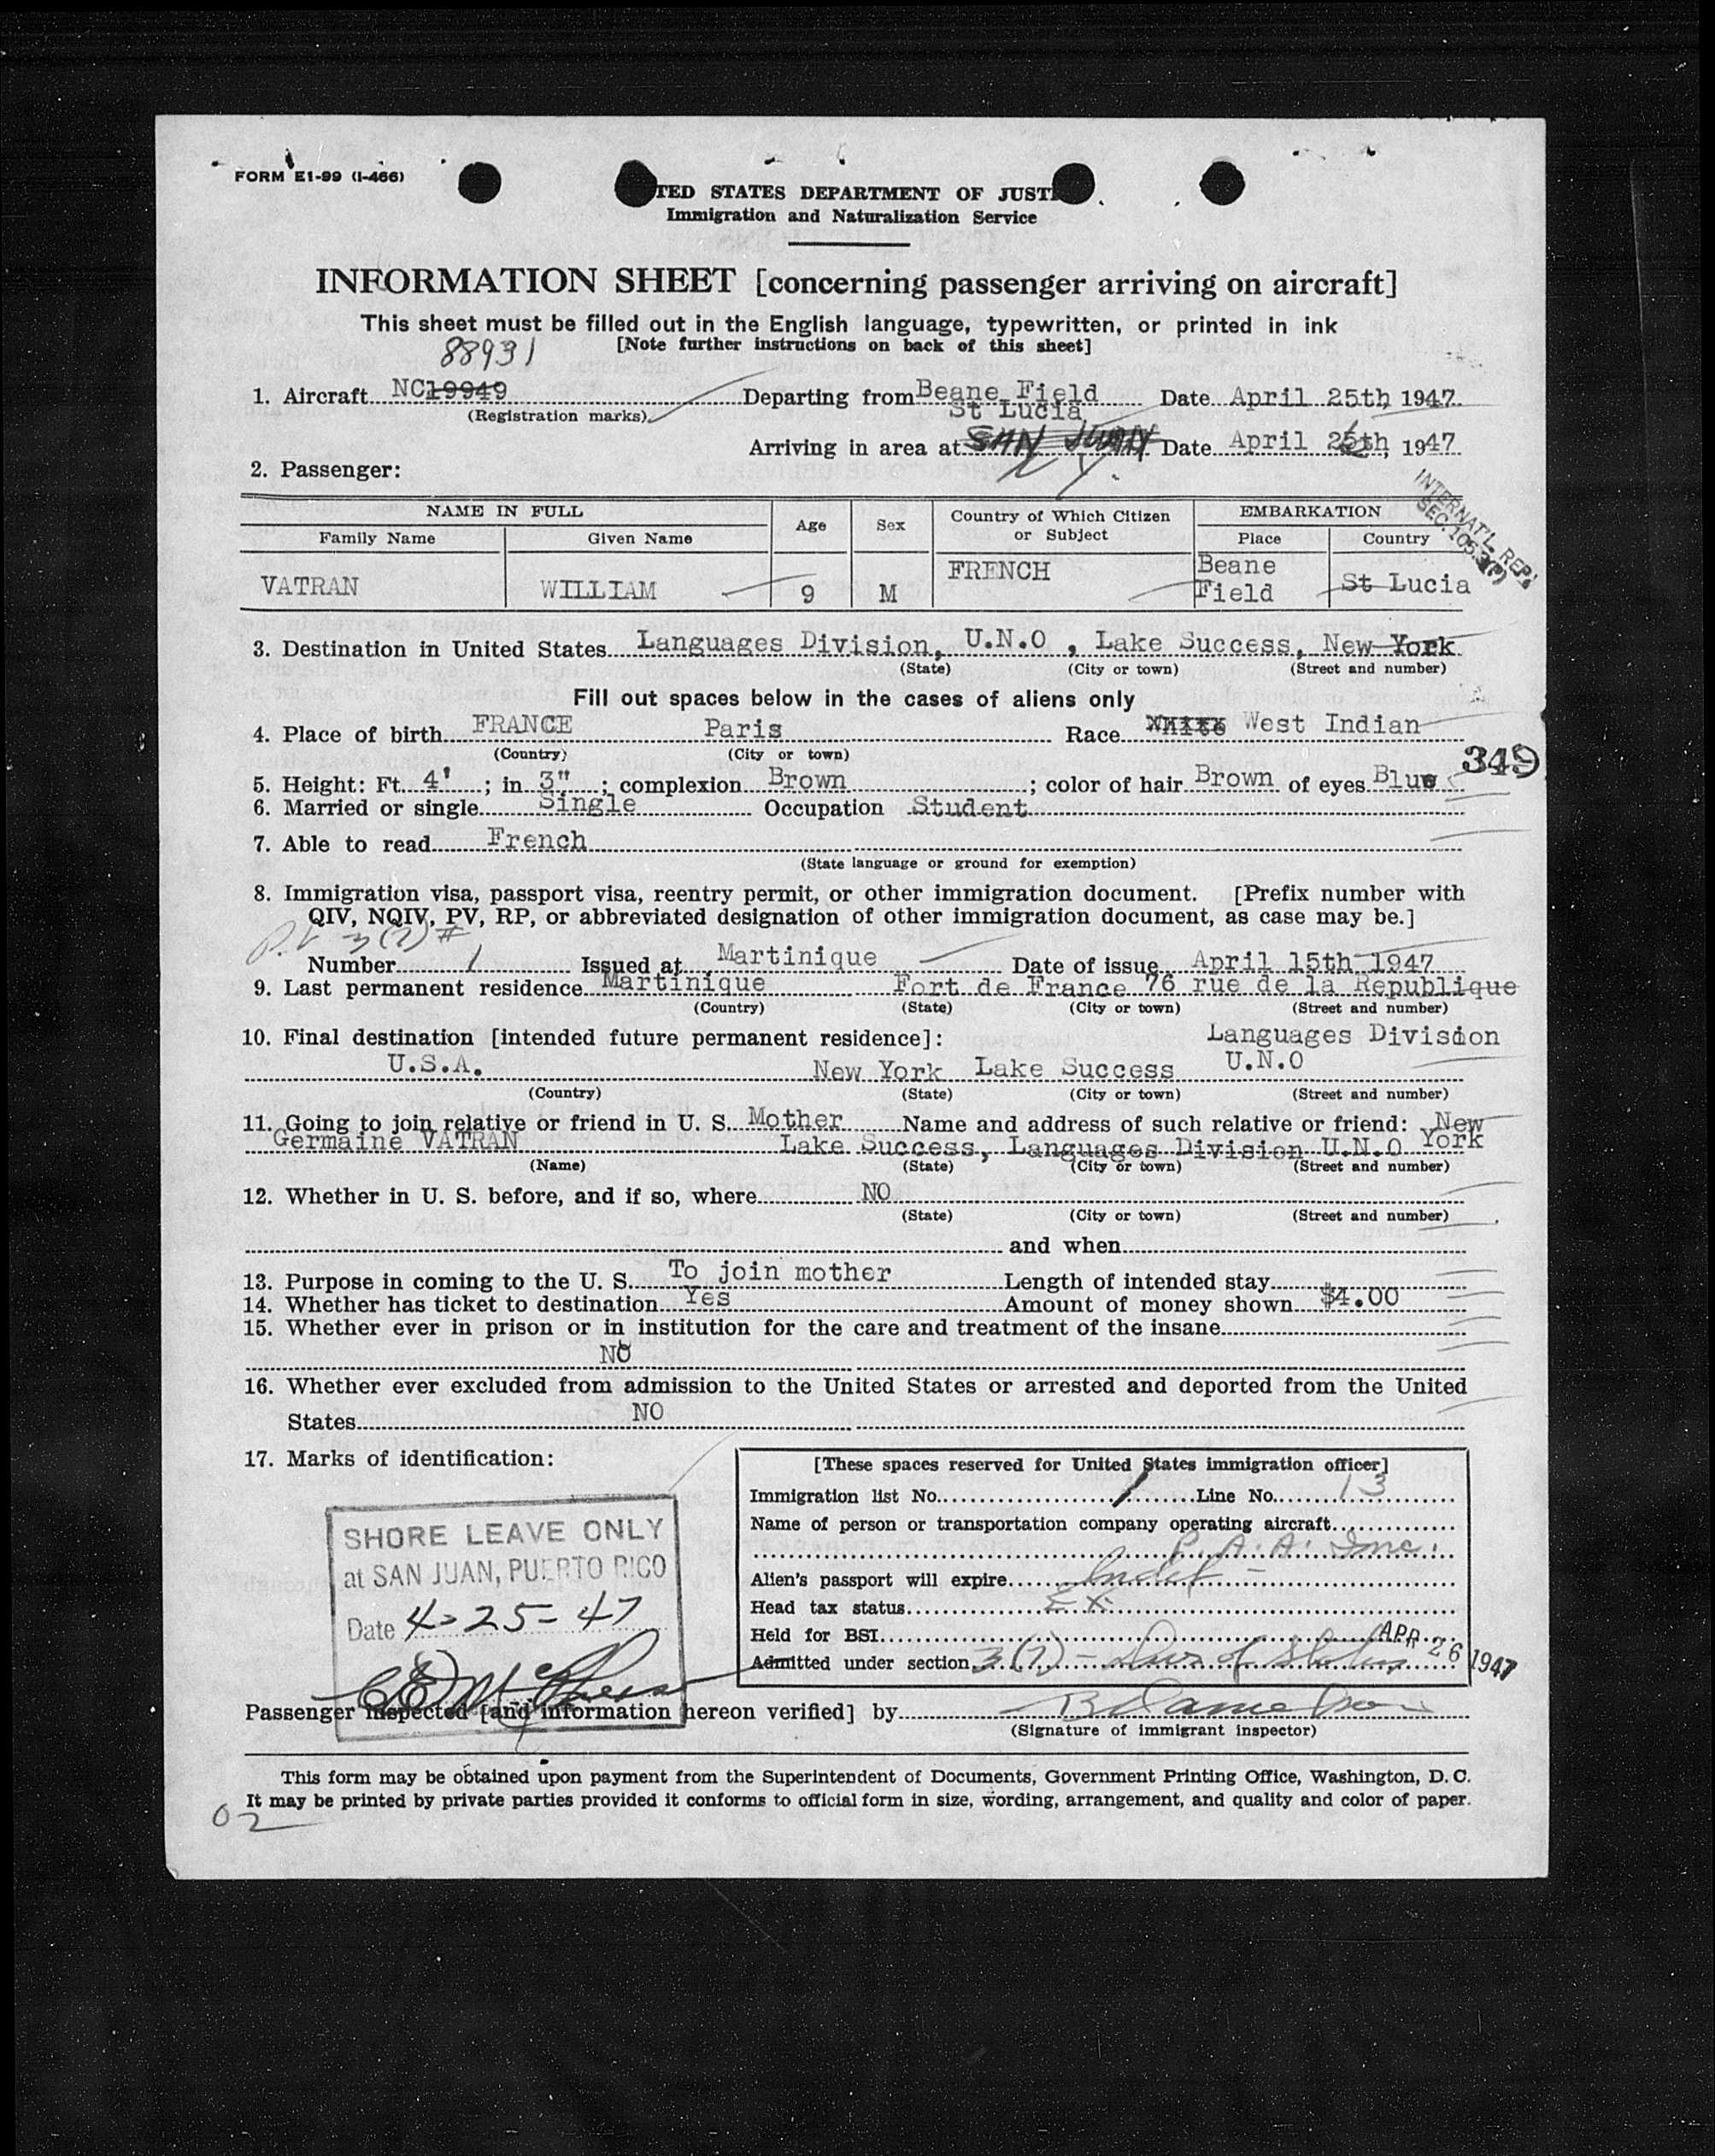 FORM E1-99 (I-466)
TED STATES DEPARTMENT OF JUST
Immigration and Naturalization Service
INFORMATION SHEET [concerning passenger arriving on aircraft]
This sheet must be filled out in the English language, typewritten, or printed in ink
88931 [Note further instructions on back of this sheet]
1. Aircraft NC19949 Departing from Beane Field Date April 25th, 1947
(Registration marks) St Lucia
Arriving in area at SAN JUAN Date April 25th, 1947
N Y.
2. Passenger:
INTERNAT'L REP.
SEC. 105.3(7)
NAME IN FULL Age Sex Country of Which Citizen or Subject EMBARKATION
Family Name Given Name Place Country
VATRAN WILLIAM 9 M FRENCH Beane Field St Lucia
3. Destination in United States Languages Division, U.N.O , Lake Success, New York
(State) (City or town) (Street and number)
Fill out spaces below in the cases of aliens only
4. Place of birth FRANCE Paris Race White West Indian
(Country) (City or town)
349
5. Height: Ft. 4' ; in. 3" ; complexion Brown ; color of hair Brown of eyes Blue
6. Married or single Single Occupation Student
7. Able to read French
(State language or ground for exemption)
8. Immigration visa, passport visa, reentry permit, or other immigration document. [Prefix number with
QIV, NQIV, PV, RP, or abbreviated designation of other immigration document, as case may be.]
P.V 3(7) #
Number 1 Issued at Martinique Date of issue April 15th 1947
9. Last permanent residence Martinique Fort de France 76 rue de la Republique
(Country) (State) (City or town) (Street and number)
10. Final destination [intended future permanent residence]: Languages Division
U.S.A. New York Lake Success U.N.O
(Country) (State) (City or town) (Street and number)
11. Going to join relative or friend in U. S. Mother Name and address of such relative or friend: New
Germaine VATRAN Lake Success, Languages Division U.N.O York
(Name) (State) (City or town) (Street and number)
12. Whether in U. S. before, and if so, where NO
(State) (City or town) (Street and number)
and when
13. Purpose in coming to the U. S. To join mother Length of intended stay
14. Whether has ticket to destination Yes Amount of money shown $4.00
15. Whether ever in prison or in institution for the care and treatment of the insane
NO
16. Whether ever excluded from admission to the United States or arrested and deported from the United
States NO
17. Marks of identification:
SHORE LEAVE ONLY
at SAN JUAN, PUERTO RICO
Date 4-25-47
[These spaces reserved for United States immigration officer]
Immigration list No. 1 Line No. 13
Name of person or transportation company operating aircraft
P. A. A. Inc.
Alien's passport will expire Indef -
Head tax status Ex.
Held for BSI
APR 26 1947
Admitted under section 3(7) - Dur of Status
Passenger inspected [and information hereon verified] by
(Signature of immigrant inspector)
This form may be obtained upon payment from the Superintendent of Documents, Government Printing Office, Washington, D. C.
It may be printed by private parties provided it conforms to official form in size, wording, arrangement, and quality and color of paper.
02